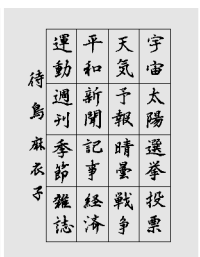 宇宙太陽選挙投票
天気予報晴曇戦争
平和新聞記事経済
運動週刊季節雑誌
待鳥麻衣子